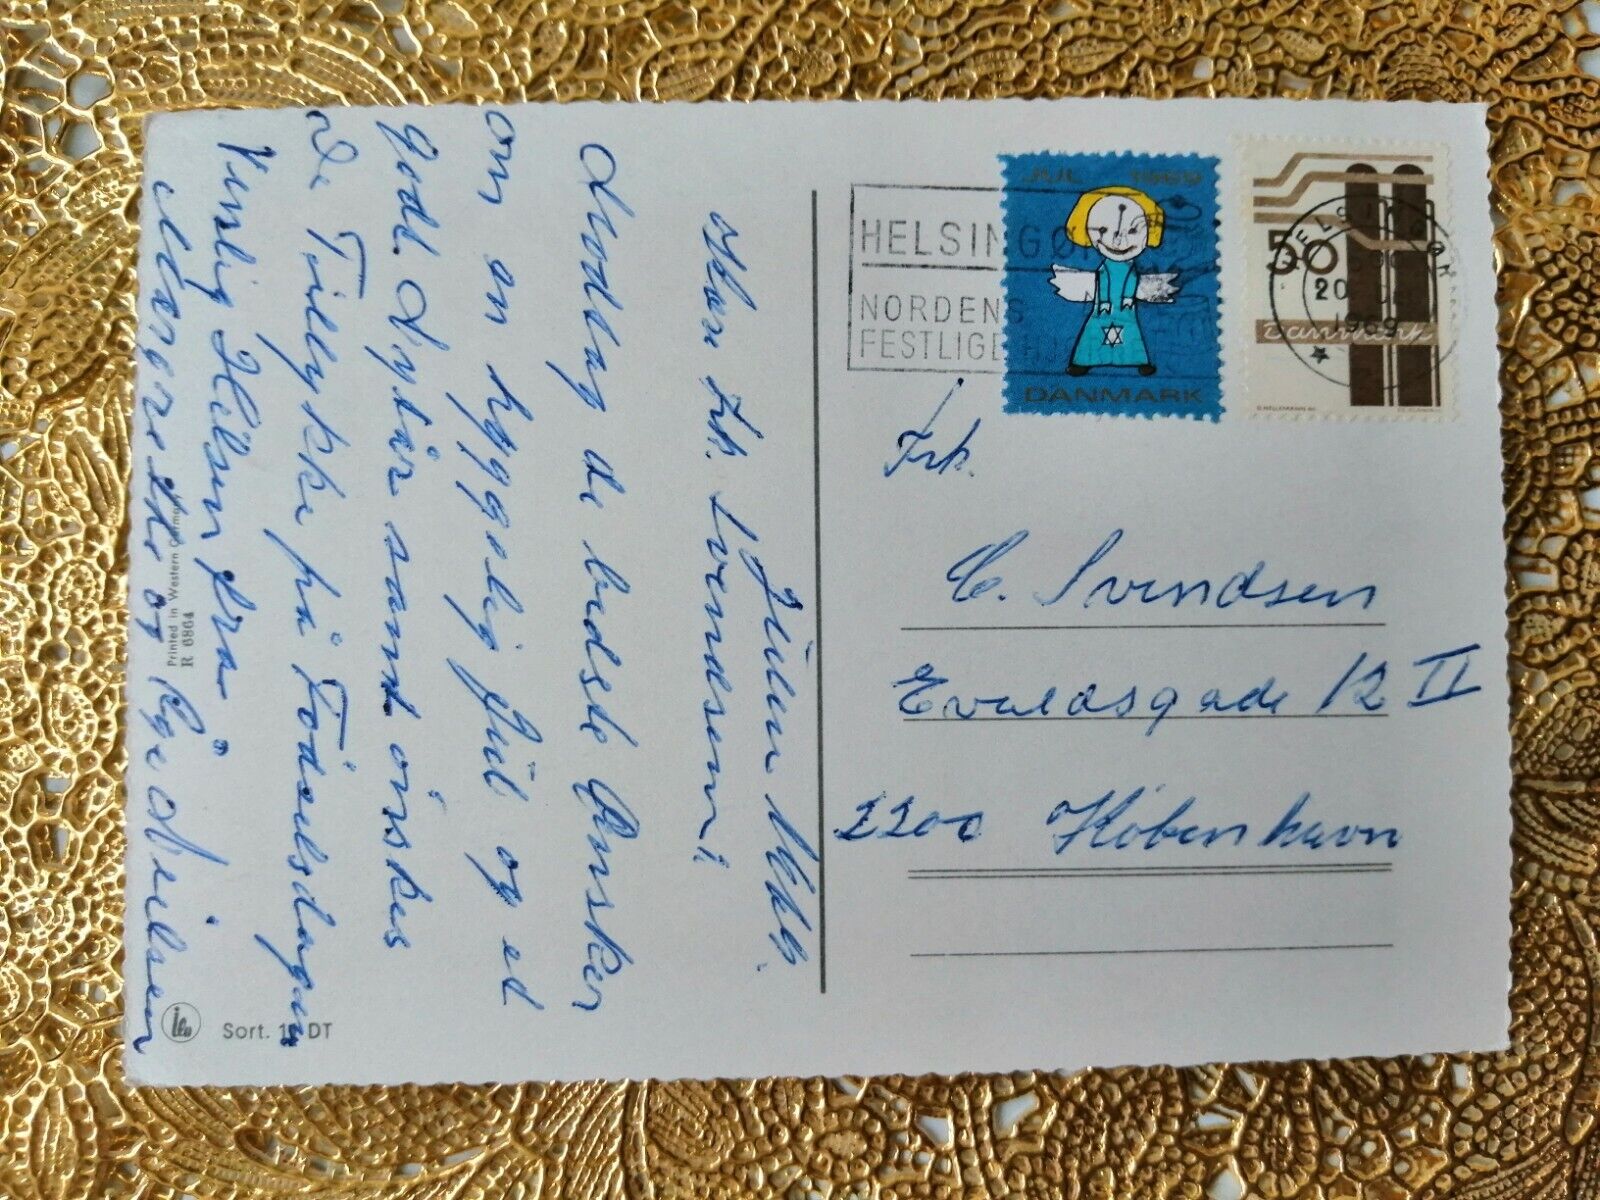 Julen 1969.
Kære Frk. Svendsen!
Modtag de bedste Ønsker
om en hyggelig Jul og et
godt Nytår samt ønskes
De Tillykke på Fødselsdagen
Venlig Hilsen fra
Margrethe og Åge Nielsen
Printed in Western
R 6864
ilo
Sort. DT
HELSINGØR
NORDENS
FESTLIGE HJ
JUL 1969
DANMARK
50
Danmark
HELSINGØR
20
1969
Frk.
C. Svendsen
Evaldsgade 12 II
2200 København